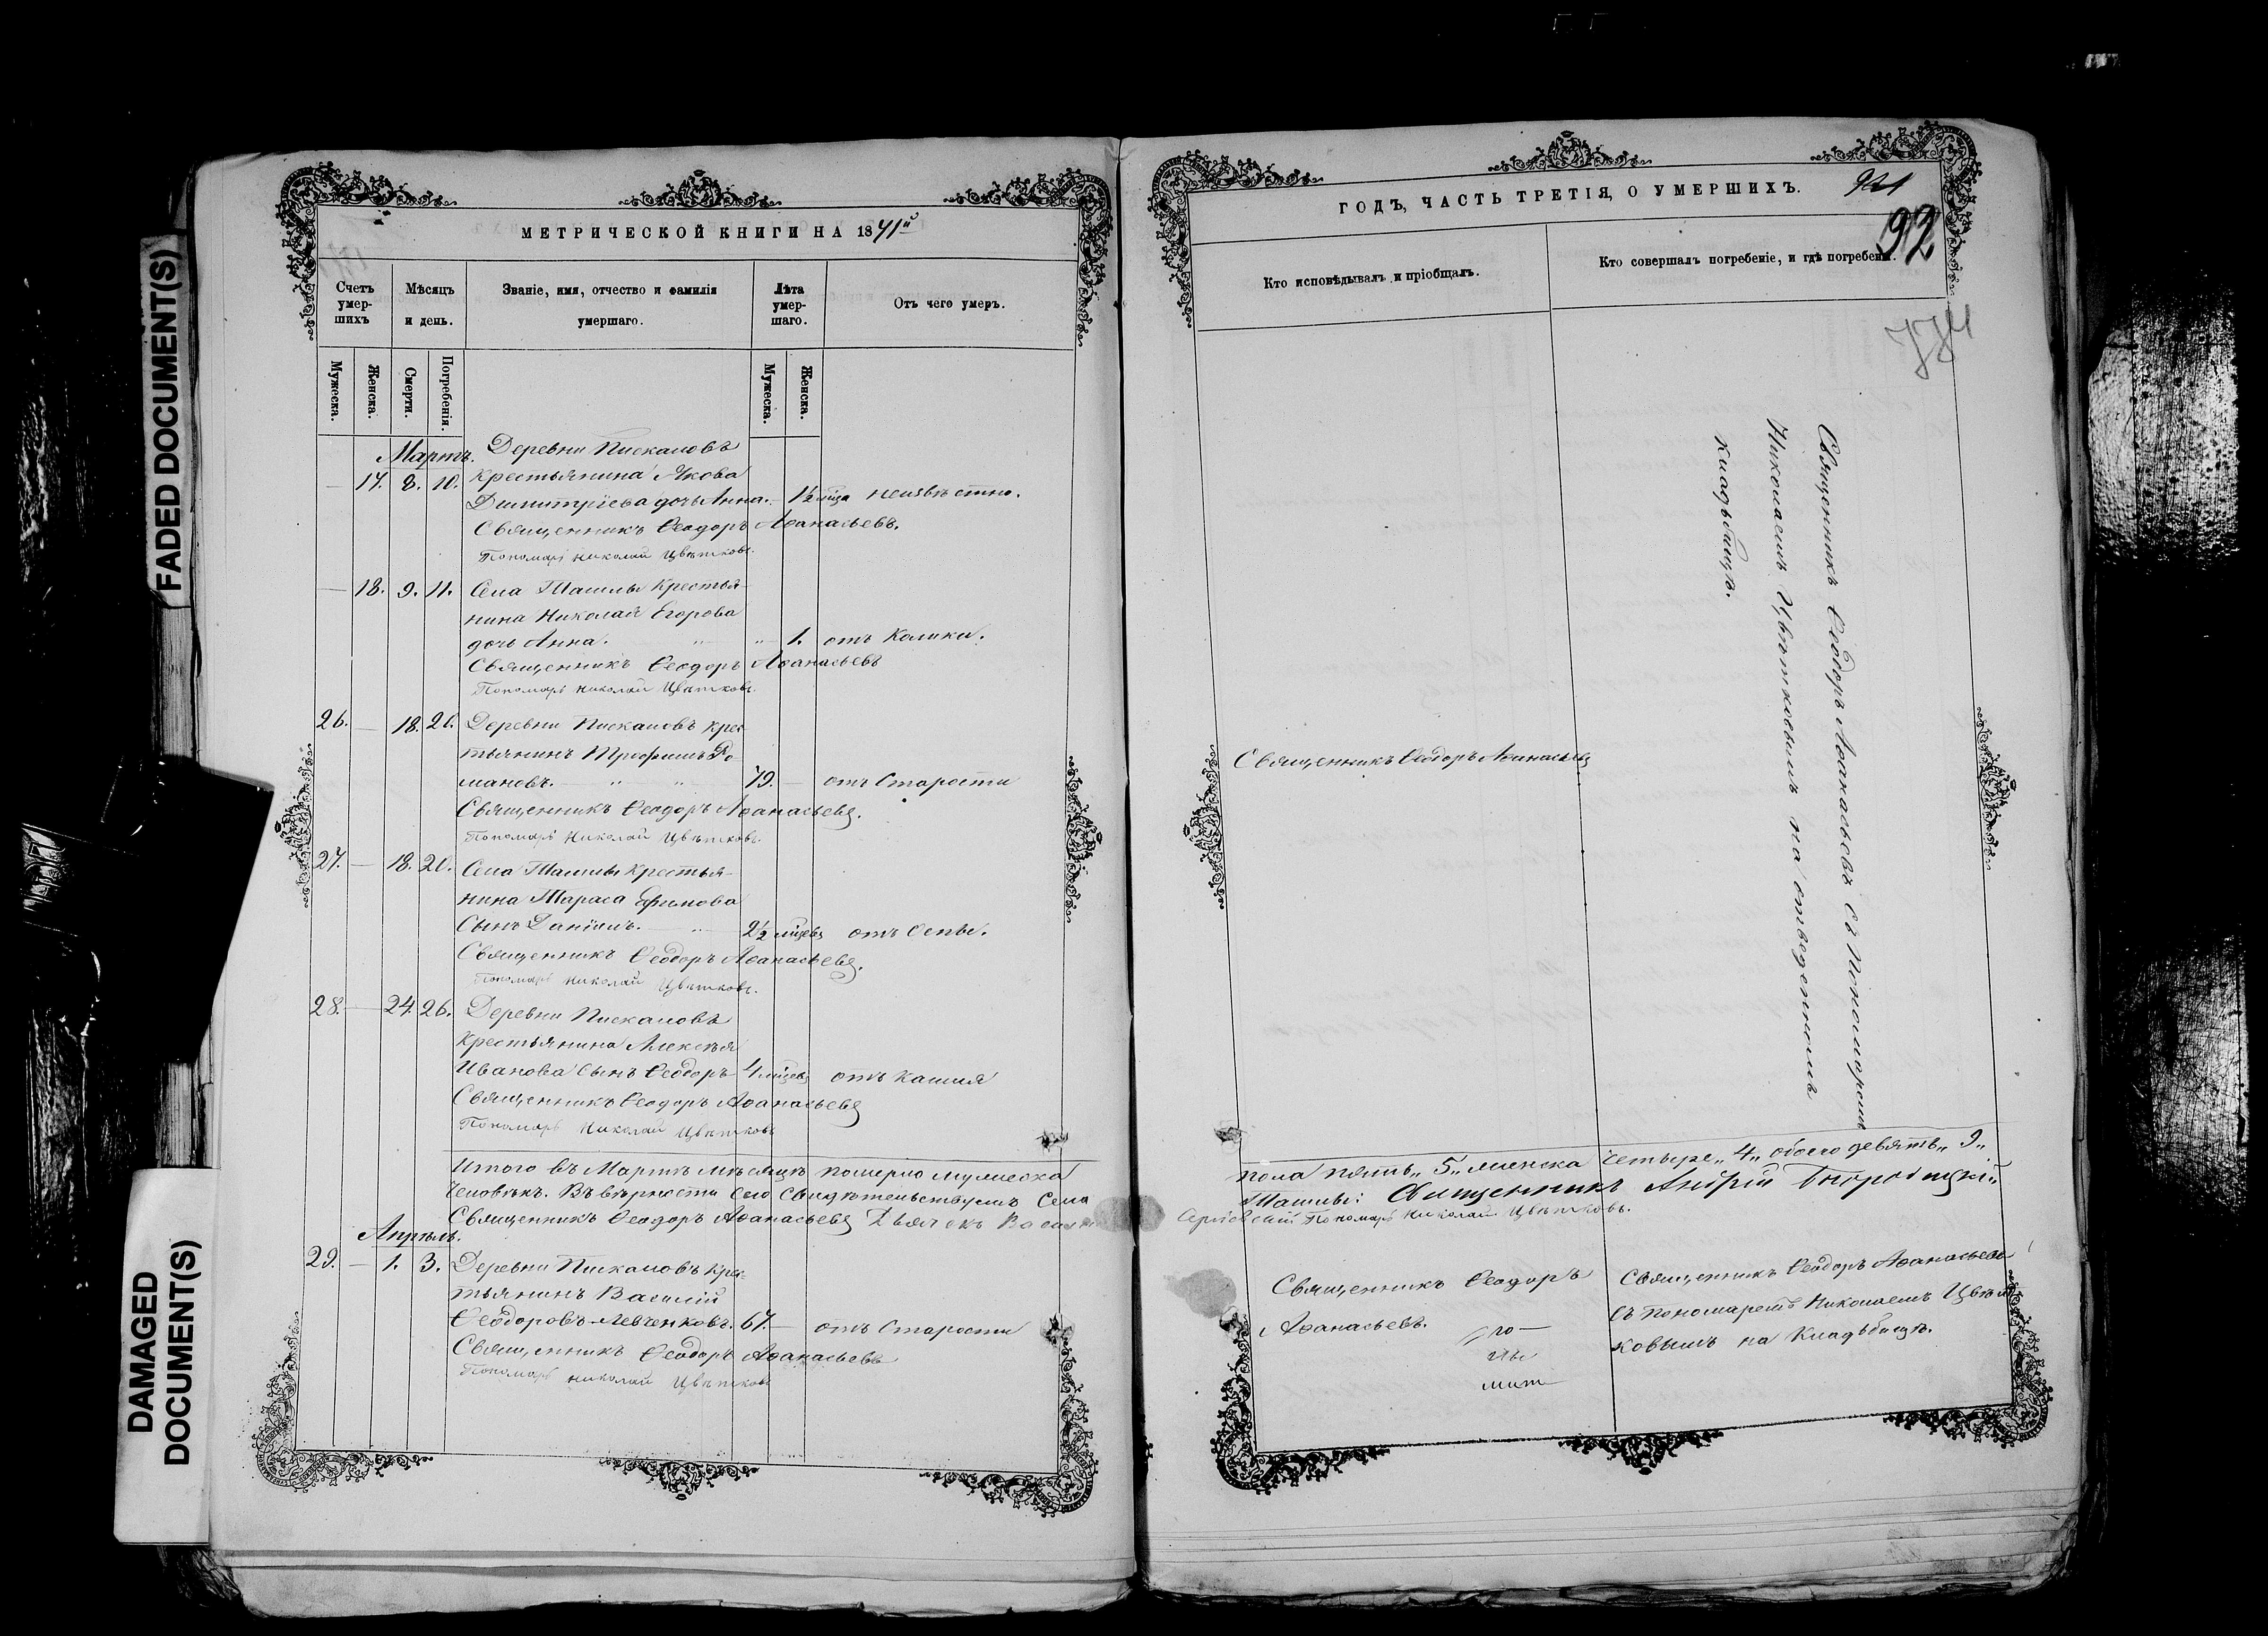 FADED DOCUMENT(S)
DAMAGED
DOCUMENT(S)
МЕТРИЧЕСКОЙ КНИГИ НА 1841й
Счетъ
умер-
шихъ
Мѣсяцъ
и день.
Званіе, имя, отчество и фамилія
умершаго.
Лѣта
умер-
шаго.
Отъ чего умеръ.
Мужеска.
Женска.
Смерти.
Погребенія.
Мужеска.
Женска.
Мартъ. Деревни Пискаловъ
— 17. 8. 10. Крестьянина Якова
Димитріева дочь Анна. 1½ мѣца неизвѣстно.
Священникъ Ѳеодоръ Аѳанасьевъ.
Пономарь Николай Цвѣтковъ.
— 18. 9. 11. Села Ташлы Крестья-
нина Николай Егорова
дочь Анна. 1. отъ Колики.
Священникъ Ѳеодоръ Аѳанасьевъ
Пономарь Николай Цвѣтковъ.
26. — 18. 20. Деревни Пискаловъ крес
тьянинъ Трофимъ Ро
мановъ. 79. — отъ Старости
Священникъ Ѳеодоръ Аѳанасьевъ.
Пономарь Николай Цвѣтковъ.
27. — 18. 20. Села Ташлы Крестья-
нина Тараса
Сынъ Даніилъ. 2½ мѣцевъ отъ Оспы.
Священникъ Ѳеодоръ Аѳанасьевъ.
Пономарь Николай Цвѣтковъ.
28. — 24. 26. Деревни Пискаловъ
Крестьянина Алексѣя
Иванова Сынъ Ѳеодоръ 4 мѣцевъ отъ кашля
Священникъ Ѳеодоръ Аѳанасьевъ
Пономарь Николай Цвѣтковъ
Итого въ Мартѣ мѣсяцѣ померло мужеска
Человѣкъ. Въ вѣрности сего свидѣтельствуемъ Села
Священникъ Ѳеодоръ Аѳанасьевъ Дьячекъ
Апрѣль.
29. — 1. 3. Деревни Пискаловъ Крес-
тьянинъ Василій
Ѳеодоровъ Левченковъ. 67. — отъ Старости
Священникъ Ѳеодоръ Аѳанасьевъ
Пономарь Николай Цвѣтковъ
ГОДЪ, ЧАСТЬ ТРЕТІЯ, О УМЕРШИХЪ.
92
774
Кто исповѣдывалъ и пріобщалъ.
Кто совершалъ погребеніе, и гдѣ погребены.
Священникъ Ѳеодоръ Аѳанасьевъ
Священникъ Ѳеодоръ Аѳанасьевъ съ Пономаромъ
Николаемъ Цвѣтковымъ на отведенномъ
кладьбищѣ.
пола пять „5„ женска четыре „4„ обоего девять „9„
Ташлы: Священникъ Андрій
Сергіевскій Пономарь Николай Цвѣтковъ.
Священникъ Ѳеодоръ
Аѳанасьевъ.
Священникъ Ѳеодоръ Аѳанасьевъ
съ пономаремъ Николаемъ Цвѣт
ковымъ на Кладьбищѣ.